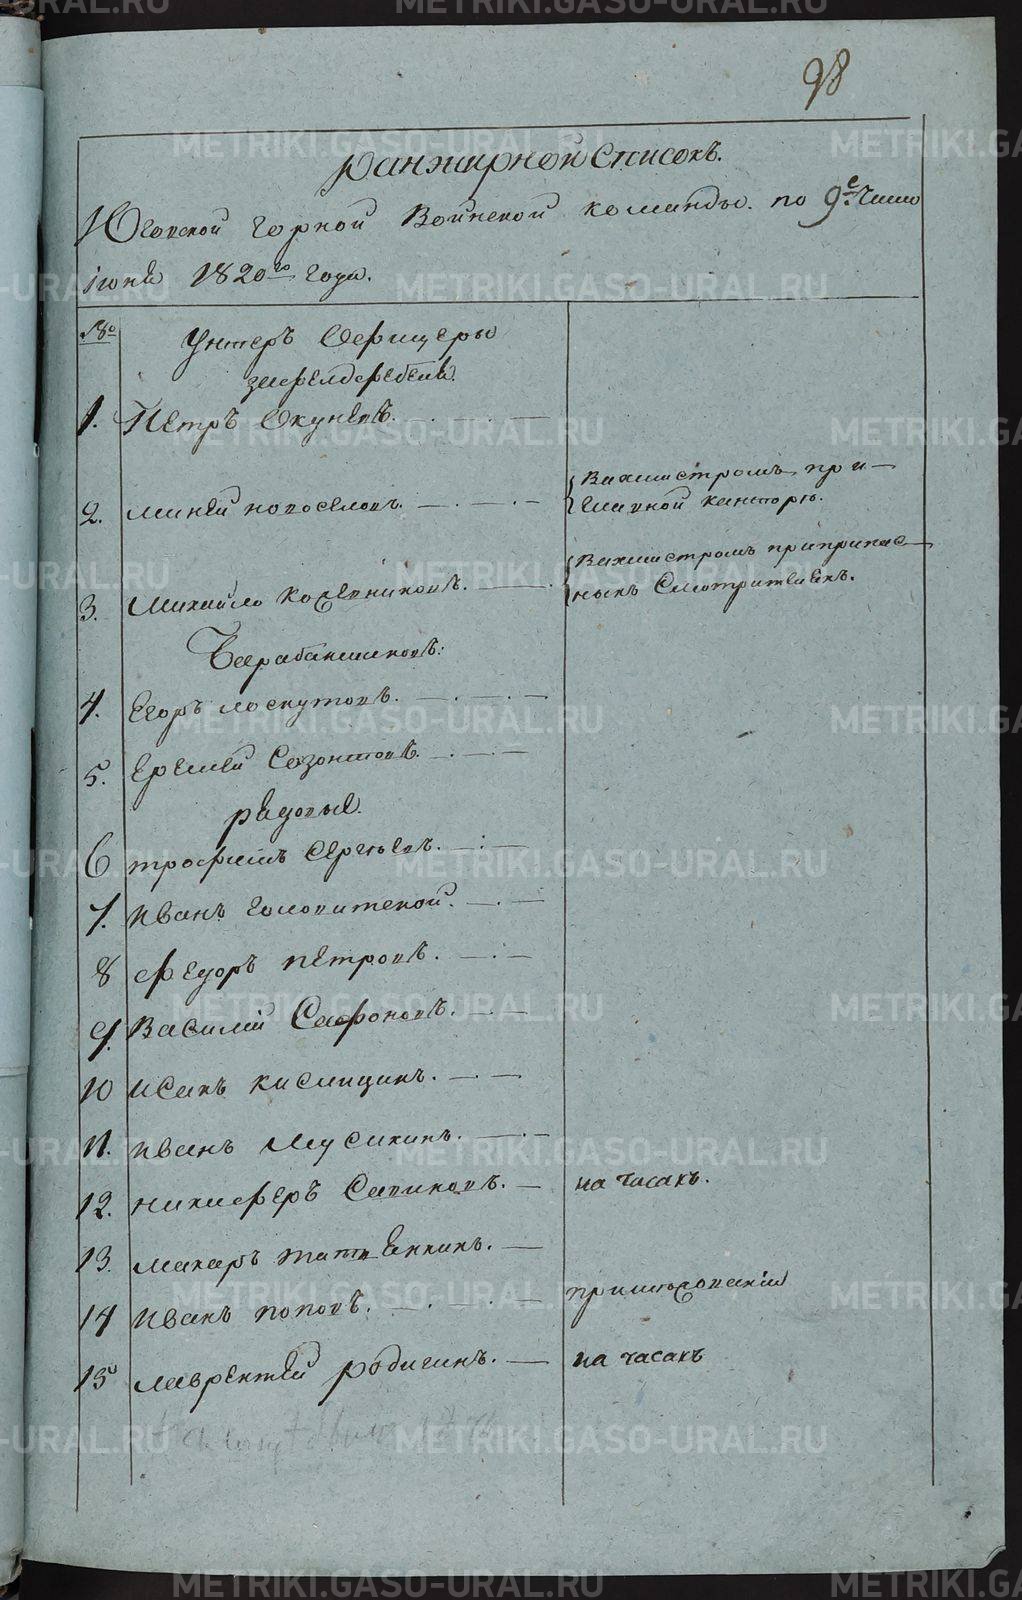 98
ранжирной списокъ.
Юговской горной Воинской команды. по 9е. число
июня 1820го года.
№
Унтеръ Офицеры
зафелдфебеля.
1. Петръ Окуневъ.
2. Миней новоселовъ. Вахмистромъ при
главной канторѣ.
3. Михайло Кожевниковъ. Вахмистромъ при припас
ныхъ Смотрителяхъ.
Барабанщиковъ:
4. Егоръ лоскутовъ.
5. Еремей Созонтовъ.
рядовые.
6 трофимъ Сергѣевъ.
7. Иванъ головитской.
8 Федоръ петровъ.
9. Василий Сафоновъ.
10 Исакъ кислицинъ.
11. Иванъ Мусихинъ.
12. никиферъ Савиковъ. на часахъ.
13. макаръ
14 Иванъ поповъ.
15 лаврентей родигинъ. на часахъ
METRIKI.GASO-URAL.RU